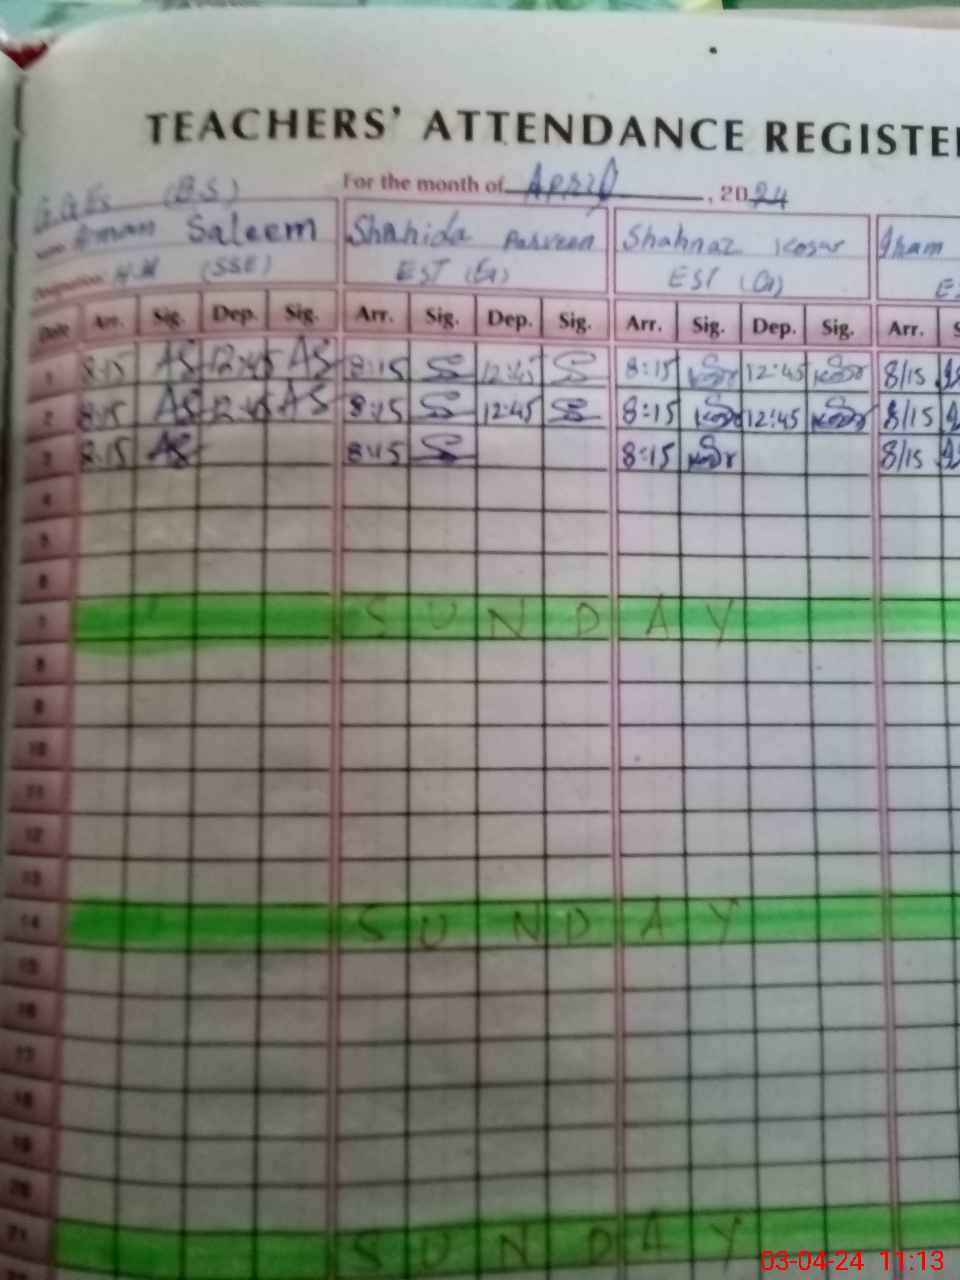 TEACHERS' ATTENDANCE REGISTE
For the month of April, 2024
(B.S)
Saleem Shahida Parveen Shahnaz Kosar
H.M (SSE) EST EST
Date Arr. Sig. Dep. Sig. Arr. Sig. Dep. Sig. Arr. Sig. Dep. Sig. Arr. S
1 8:15 AS 12:45 AS 8:15 12:45 8:15 12:45 8/15
2 8:15 AS 12:45 AS 8:15 12:45 8:15 12:45 8/15
3 8:15 AS 8:15 8:15 8/15
4
5
6
7 SUNDAY
8
9
10
11
12
13
14 SUNDAY
15
16
17
18
19
20
21 SUNDAY
03-04-24 11:13